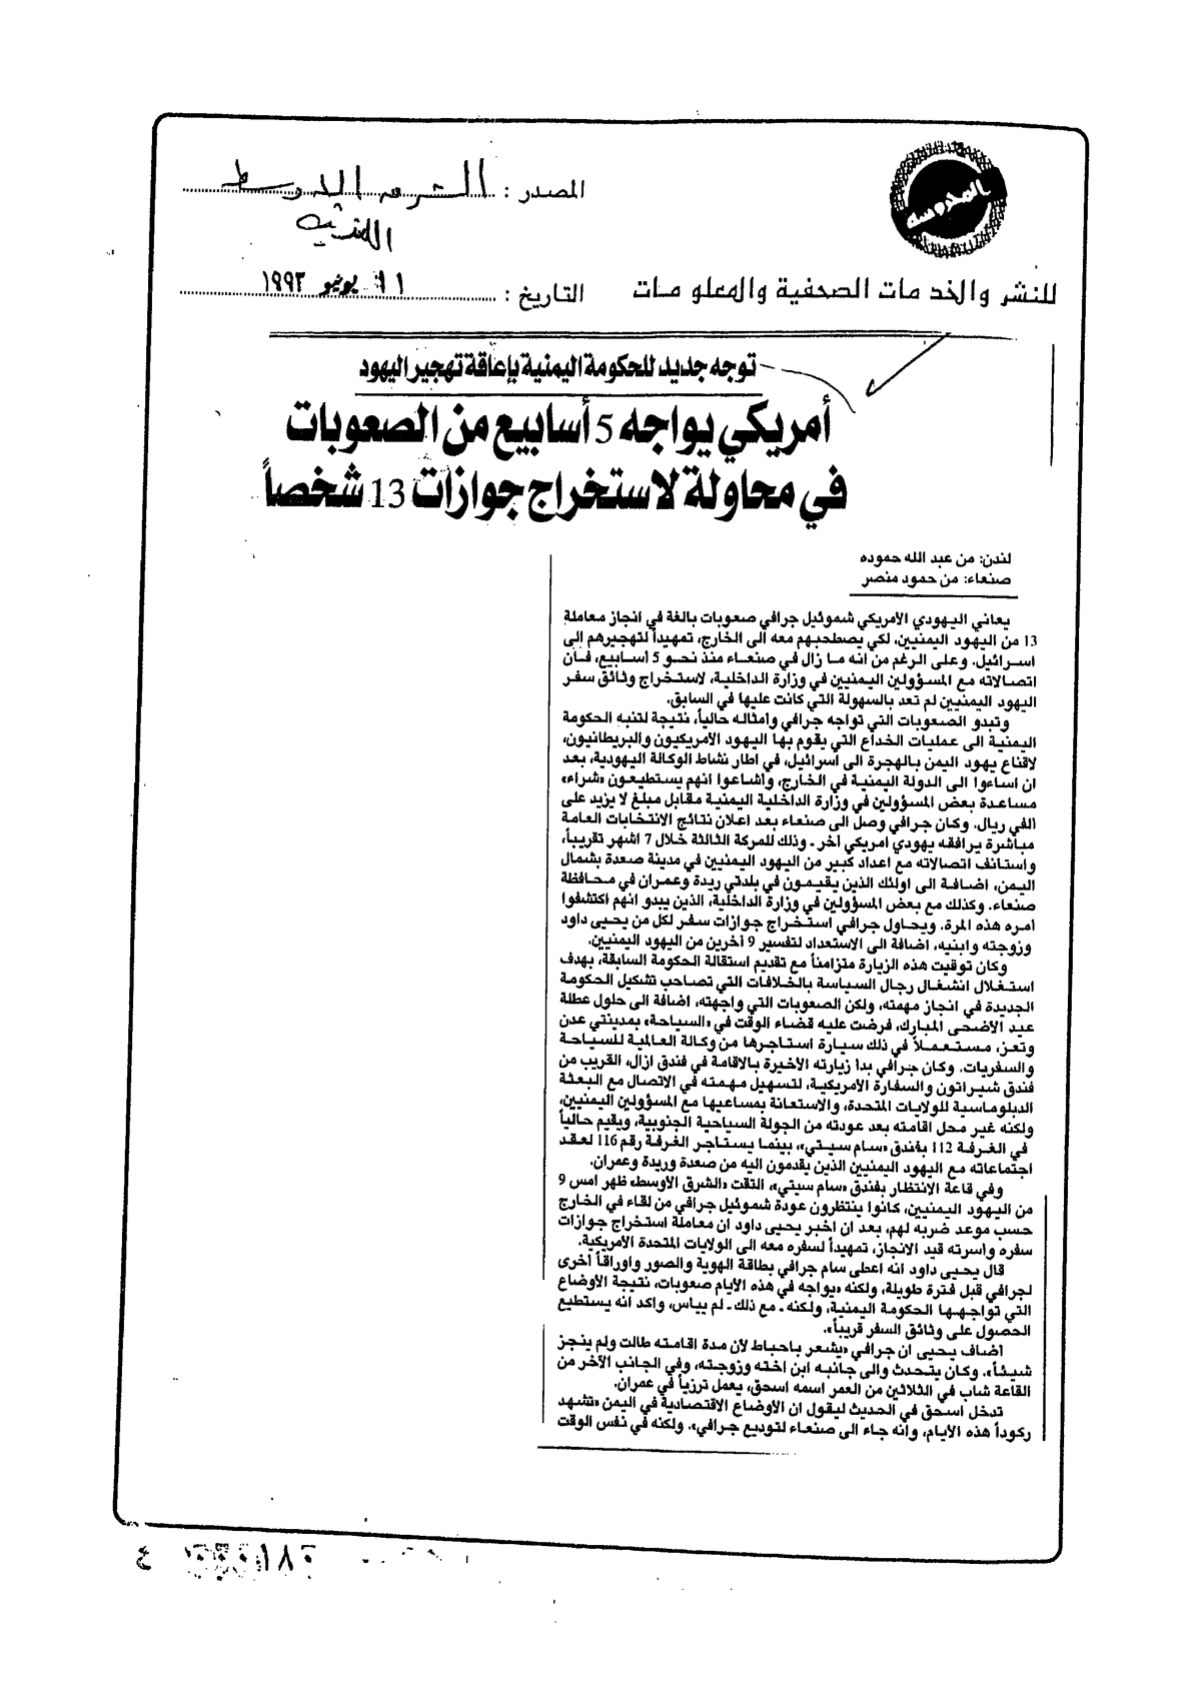 المدوسة
المصدر : الشرق الاوسط
اللندنية
للنشر والخدمات الصحفية والمعلومات
التاريخ : ١١ يونيو ١٩٩٣
توجه جديد للحكومة اليمنية بإعاقة تهجير اليهود
أمريكي يواجه 5 أسابيع من الصعوبات
في محاولة لاستخراج جوازات 13 شخصاً
لندن: من عبد الله حموده
صنعاء: من حمود منصر
يعاني اليهودي الأمريكي شموئيل جرافي صعوبات بالغة في انجاز معاملة
13 من اليهود اليمنيين، لكي يصطحبهم معه الى الخارج، تمهيداً لتهجيرهم الى
اسرائيل. وعلى الرغم من انه ما زال في صنعاء منذ نحو 5 أسابيع، فأن
اتصالاته مع المسؤولين اليمنيين في وزارة الداخلية، لاستخراج وثائق سفر
اليهود اليمنيين لم تعد بالسهولة التي كانت عليها في السابق.
وتبدو الصعوبات التي تواجه جرافي وامثاله حالياً، نتيجة لتنبه الحكومة
اليمنية الى عمليات الخداع التي يقوم بها اليهود الأمريكيون والبريطانيون،
لاقناع يهود اليمن بالهجرة الى اسرائيل، في اطار نشاط الوكالة اليهودية، بعد
ان اساءوا الى الدولة اليمنية في الخارج، واشاعوا انهم يستطيعون «شراء»
مساعدة بعض المسؤولين في وزارة الداخلية اليمنية مقابل مبلغ لا يزيد على
الفي ريال. وكان جرافي وصل الى صنعاء بعد اعلان نتائج الانتخابات العامة
مباشرة يرافقه يهودي امريكي آخر ـ وذلك للمركة الثالثة خلال 7 اشهر تقريباً،
واستأنف اتصالاته مع اعداد كبير من اليهود اليمنيين في مدينة صعدة بشمال
اليمن، اضافة الى اولئك الذين يقيمون في بلدتي ريدة وعمران في محافظة
صنعاء. وكذلك مع بعض المسؤولين في وزارة الداخلية، الذين يبدو انهم اكتشفوا
امره هذه المرة. ويحاول جرافي استخراج جوازات سفر لكل من يحيى داود
وزوجته وابنيه، اضافة الى الاستعداد لتفسير 9 آخرين من اليهود اليمنيين.
وكان توقيت هذه الزيارة متزامناً مع تقديم استقالة الحكومة السابقة، بهدف
استغلال انشغال رجال السياسة بالخلافات التي تصاحب تشكيل الحكومة
الجديدة في انجاز مهمته، ولكن الصعوبات التي واجهته، اضافة الى حلول عطلة
عيد الأضحى المبارك، فرضت عليه قضاء الوقت في «السياحة» بمدينتي عدن
وتعز، مستعملاً في ذلك سيارة استأجرها من وكالة العالمية للسياحة
والسفريات. وكان جرافي بدأ زيارته الأخيرة بالاقامة في فندق ازال، القريب من
فندق شيراتون والسفارة الأمريكية، لتسهيل مهمته في الاتصال مع البعثة
الدبلوماسية للولايات المتحدة، والاستعانة بمساعيها مع المسؤولين اليمنيين،
ولكنه غير محل اقامته بعد عودته من الجولة السياحية الجنوبية، ويقيم حالياً
في الغرفة 112 بفندق «سام سيتي»، بينما يستأجر الغرفة رقم 116 لعقد
اجتماعاته مع اليهود اليمنيين الذين يقدمون اليه من صعدة وريدة وعمران.
وفي قاعة الانتظار بفندق «سام سيتي»، التقت «الشرق الأوسط» ظهر امس 9
من اليهود اليمنيين، كانوا ينتظرون عودة شموئيل جرافي من لقاء في الخارج
حسب موعد ضربه لهم، بعد ان اخبر يحيى داود ان معاملة استخراج جوازات
سفره واسرته قيد الانجاز، تمهيداً لسفره معه الى الولايات المتحدة الأمريكية.
قال يحيى داود انه اعطى سام جرافي بطاقة الهوية والصور واوراقاً أخرى
لجرافي قبل فترة طويلة، ولكنه «يواجه في هذه الأيام صعوبات، نتيجة الأوضاع
التي تواجهها الحكومة اليمنية، ولكنه ـ مع ذلك ـ لم ييأس، واكد انه يستطيع
الحصول على وثائق السفر قريباً».
أضاف يحيى ان جرافي «يشعر بإحباط لأن مدة اقامته طالت ولم ينجز
شيئاً». وكان يتحدث والى جانبه ابن اخته وزوجته، وفي الجانب الآخر من
القاعة شاب في الثلاثين من العمر اسمه اسحق، يعمل ترزياً في عمران.
تدخل اسحق في الحديث ليقول ان الأوضاع الاقتصادية في اليمن «تشهد
ركوداً هذه الأيام، وأنه جاء الى صنعاء لتوديع جرافي». ولكنه في نفس الوقت